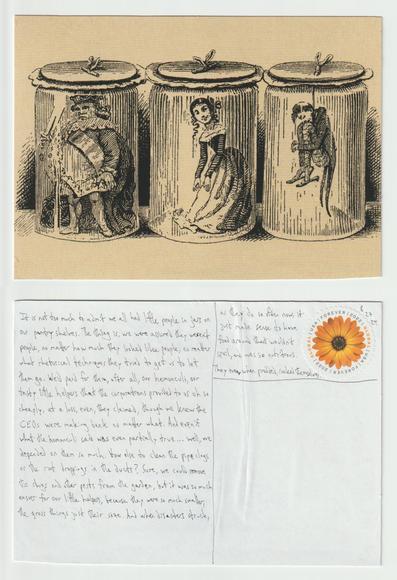 It is not too much to admit we all had little people in jars on
our pantry shelves. The thing is, we were assured they weren't
people, no matter how much they looked like people, no matter
what rhetorical techniques they tried to get us to let
them go. We'd paid for them, after all, our homunculi, our
tasty little helpers that the corporations provided to us oh so
cheaply, at a loss, even, they claimed, though we knew the
CEOs were making bank no matter what. And even if
what the homunculi said was even partially true... well, we
depended on them so much, how else to clean the pipe clogs
or the rat droppings in the ducts? Sure, we could remove
the slugs and other pests from the garden, but it was so much
easier for our little helpers, because they were so much smaller,
the gross things just their size. And when disasters struck,
as they do so often now, it
just made sense to have
food around that wouldn't
spoil, and was so nutritious.
They even, when pickled, salted themselves.
FOREVER
FOREVER